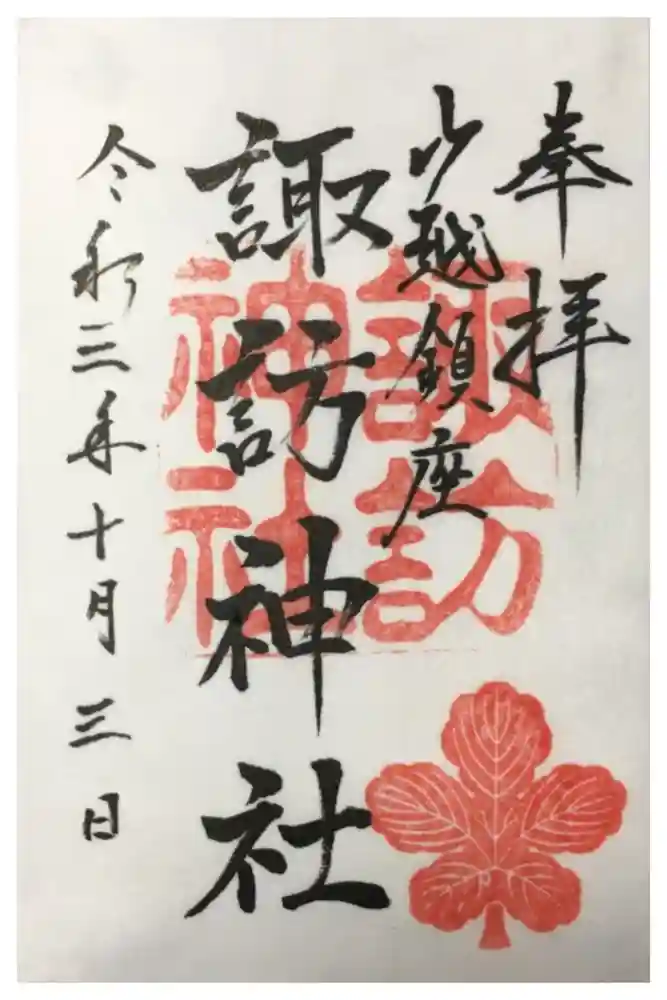 奉拝
小越鎮座
諏訪神社
令和三年十月三日
諏訪
神社